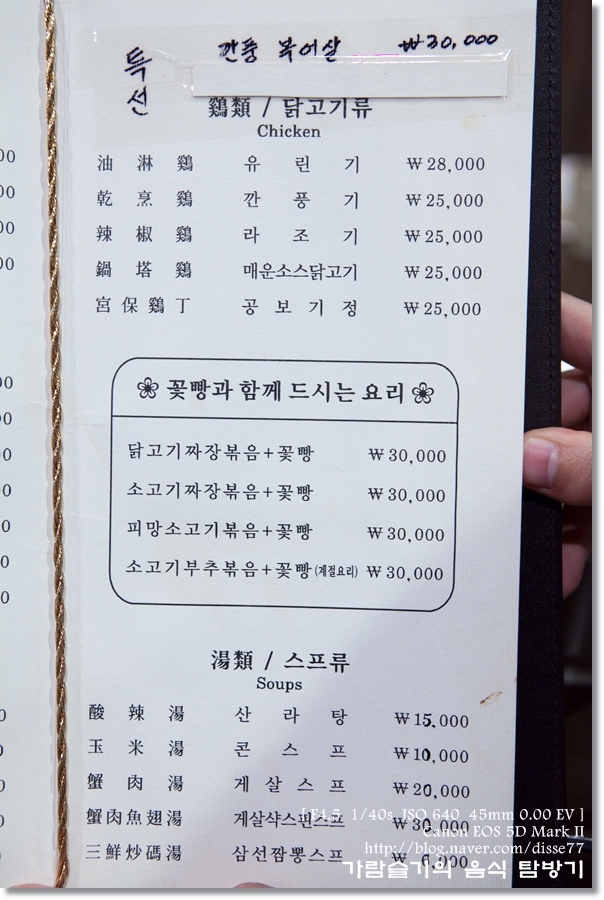 특선 깐풍 복어살 ₩30,000
鷄類 / 닭고기류
Chicken
油淋鷄 유린기 ₩28,000
乾烹鷄 깐풍기 ₩25,000
辣椒鷄 라조기 ₩25,000
鍋塔鷄 매운소스닭고기 ₩25,000
宮保鷄丁 공보기정 ₩25,000
꽃빵과 함께 드시는 요리
닭고기짜장볶음+꽃빵 ₩30,000
소고기짜장볶음+꽃빵 ₩30,000
피망소고기볶음+꽃빵 ₩30,000
소고기부추볶음+꽃빵(계절요리) ₩30,000
湯類 / 스프류
Soups
酸辣湯 산라탕 ₩15,000
玉米湯 콘스프 ₩10,000
蟹肉湯 게살스프 ₩20,000
蟹肉魚翅湯 게살샥스핀스프 ₩30,000
三鮮炒碼湯 삼선짬뽕스프 ₩6,000
[ F4.5, 1/40s, ISO 640, 45mm 0.00 EV ]
Canon EOS 5D Mark II
http://blog.naver.com/disse77
가람슬기의 음식 탐방기